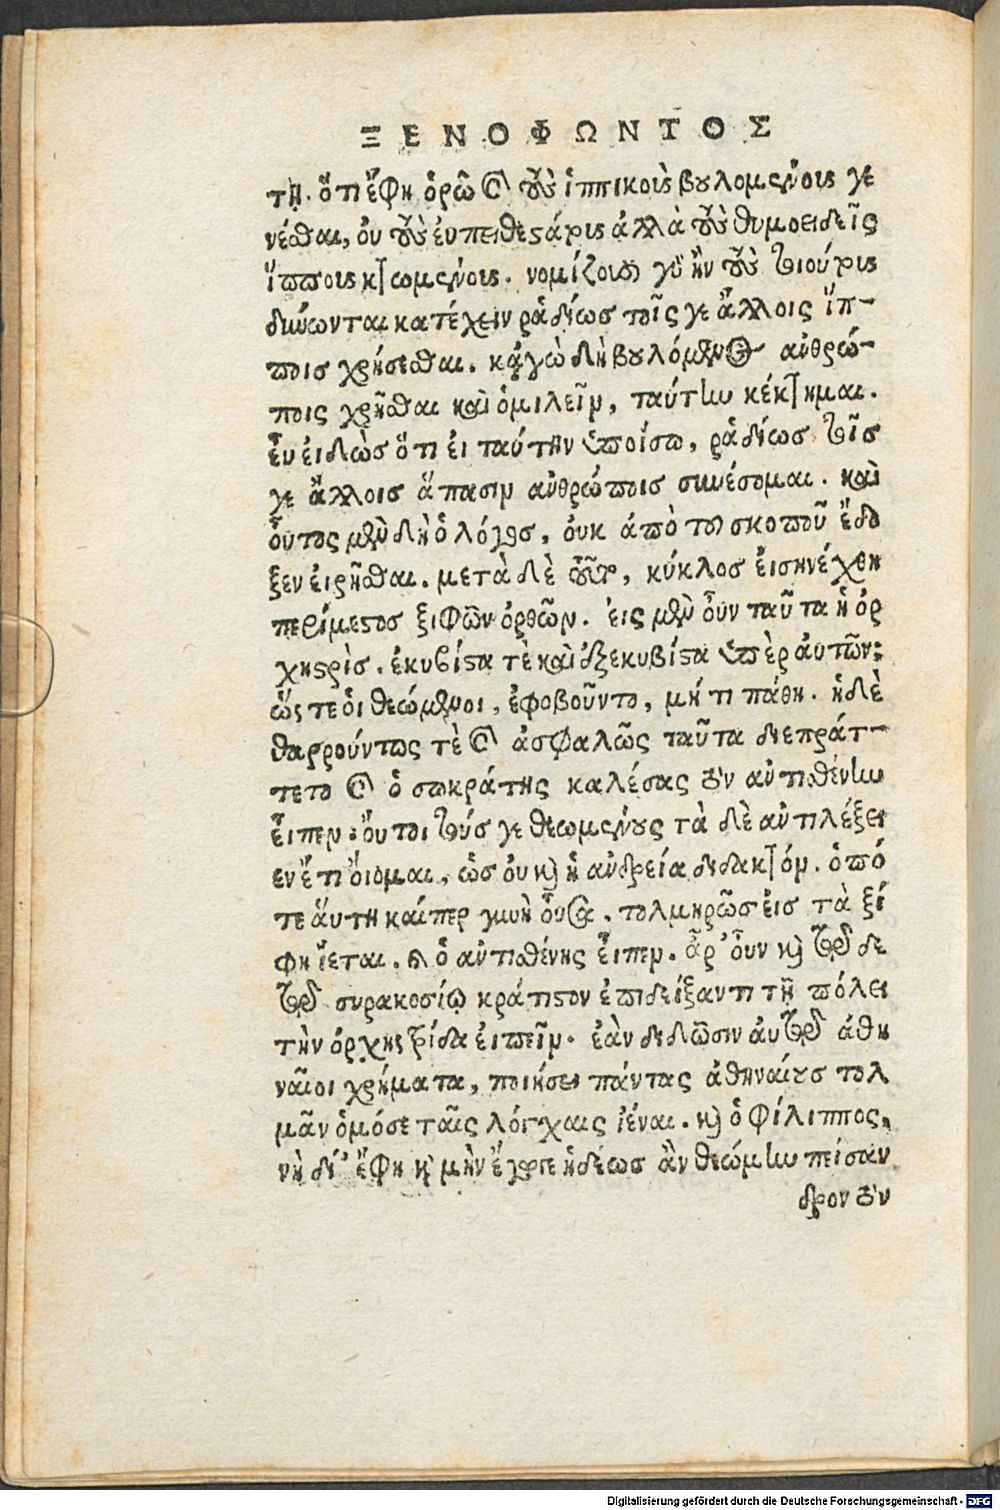 ΞΕΝΟΦΩΝΤΟΣ
τη. ὅτι ἔφη ὁρῶ καὶ τοὺς ἱππικοὺς βουλομένους γε
νέσθαι, οὐ τοὺς εὐπειθεστάτους ἀλλὰ τοὺς θυμοειδεῖς
ἵππους κτωμένους. νομίζουσι γὰρ ἢν τοὺς τοιούτους
δύνωνται κατέχειν ῥαδίως τοῖς γε ἄλλοις ἵπ-
ποις χρήσεσθαι. κἀγὼ δὴ βουλόμενος ἀνθρώ-
ποις χρῆσθαι καὶ ὁμιλεῖν, ταύτην κέκτημαι.
εὖ εἰδὼς ὅτι εἰ ταύτην ὑποίσω, ῥαδίως τοῖς
γε ἄλλοις ἅπασιν ἀνθρώποις συνέσομαι. καὶ
οὗτος μὲν δὴ ὁ λόγος, οὐκ ἀπὸ τοῦ σκοποῦ ἔδο
ξεν εἰρῆσθαι. μετὰ δὲ τοῦτο, κύκλος εἰσηνέχθη
περίμεστος ξιφῶν ὀρθῶν. εἰς μὲν οὖν ταῦτα ἡ ὀρ
χηστρὶς. ἐκυβίστα τὲ καὶ ἐξεκυβίστα ὑπὲρ αὐτῶν:
ὥστε οἱ θεώμενοι, ἐφοβοῦντο, μή τι πάθη. ἡ δὲ
θαρρούντως τὲ καὶ ἀσφαλῶς ταῦτα διεπράτ-
τετο καὶ ὁ σωκράτης καλέσας τὸν ἀντισθένην
εἶπεν: οὔτοι τούς γε θεωμένους τὰ δὲ ἀντιλέξει
εν ἔτι οἴομαι, ὡς οὐ καὶ ἡ ἀνδρεία διδακτόν. ὁπό
τε αὕτη καίπερ γυνὴ οὖσα. τολμηρῶς εἰς τὰ ξί
φη ἵεται. καὶ ὁ ἀντισθένης εἶπεν. ἆρ' οὖν καὶ τῷδε
τῷ συρακοσίῳ κράτιστον ἐπιδείξαντι τῇ πόλει
τὴν ὀρχηστρίδα εἰπεῖν. ἐὰν διδῶσιν αὐτῷ ἀθη
ναῖοι χρήματα, ποιήσει πάντας ἀθηναίους τολ
μᾶν ὁμόσε ταῖς λόγχαις ἰέναι. καὶ ὁ φίλιππος,
νὴ δί' ἔφη καὶ μὴν ἔγωγε ἡδέως ἂν θεώμην πείσαν
δρον τὸν
Digitalisierung gefördert durch die Deutsche Forschungsgemeinschaft - DFG